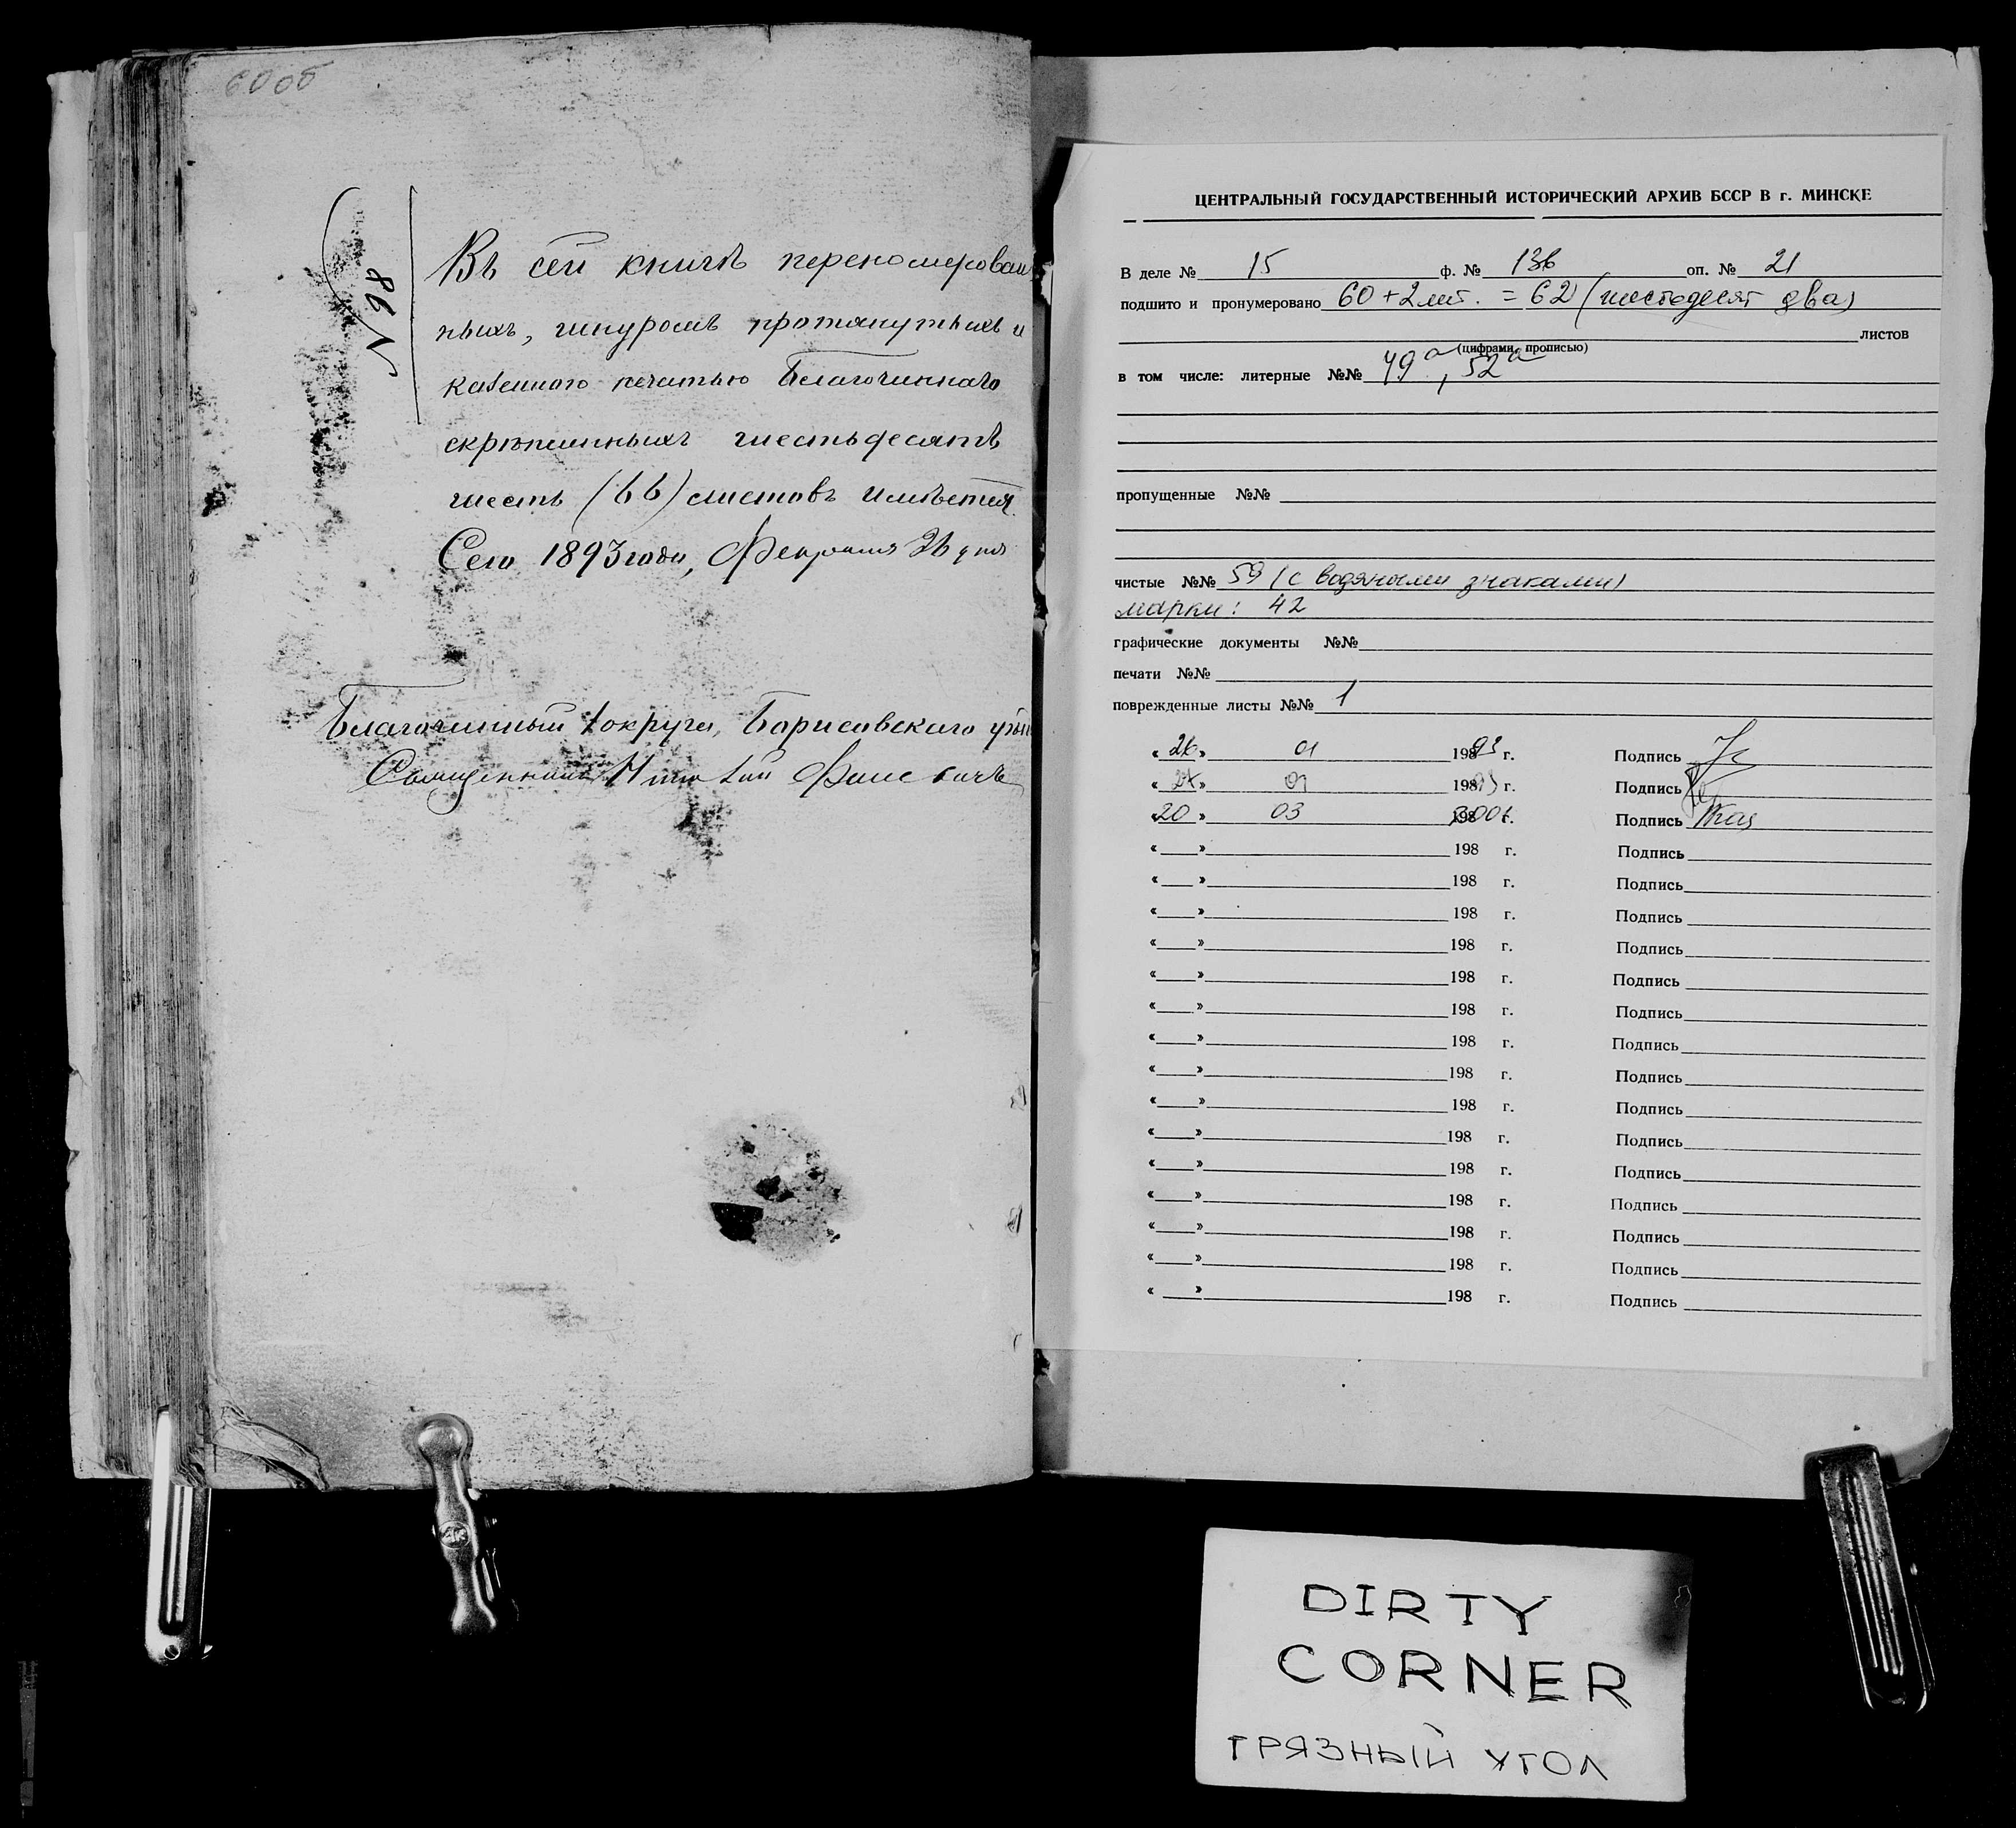 60 об
№ 98
Въ сей книгѣ переномерован
ныхъ, шнуромъ протянутыхъ и
казенного печатью Благочиннаго
скрѣпленныхъ шестьдесятъ
шесть (66) листовъ имѣется.
Сего 1893 года, Февраля 26 дня
Благочинный 1 округа, Борисовскаго уѣз
Священникъ
ЦЕНТРАЛЬНЫЙ ГОСУДАРСТВЕННЫЙ ИСТОРИЧЕСКИЙ АРХИВ БССР В г. МИНСКЕ
В деле № 15 ф. № 136 оп. № 21
подшито и пронумеровано 60 + 2 лит. = 62 (шестьдесят два)
листов
(цифрами, прописью)
в том числе: литерные №№ 49а, 52а
пропущенные №№
чистые №№ 59 (с водяными знаками)
марки: 42
графические документы №№
печати №№
поврежденные листы №№ 1
« 26 » 01 1993 г. Подпись
« 27 » 01 1993 г. Подпись
« 20 » 03 2001 г. Подпись
« » 198 г. Подпись
« » 198 г. Подпись
« » 198 г. Подпись
« » 198 г. Подпись
« » 198 г. Подпись
« » 198 г. Подпись
« » 198 г. Подпись
« » 198 г. Подпись
« » 198 г. Подпись
« » 198 г. Подпись
« » 198 г. Подпись
« » 198 г. Подпись
« » 198 г. Подпись
« » 198 г. Подпись
« » 198 г. Подпись
DIRTY
CORNER
ГРЯЗНЫЙ УГОЛ